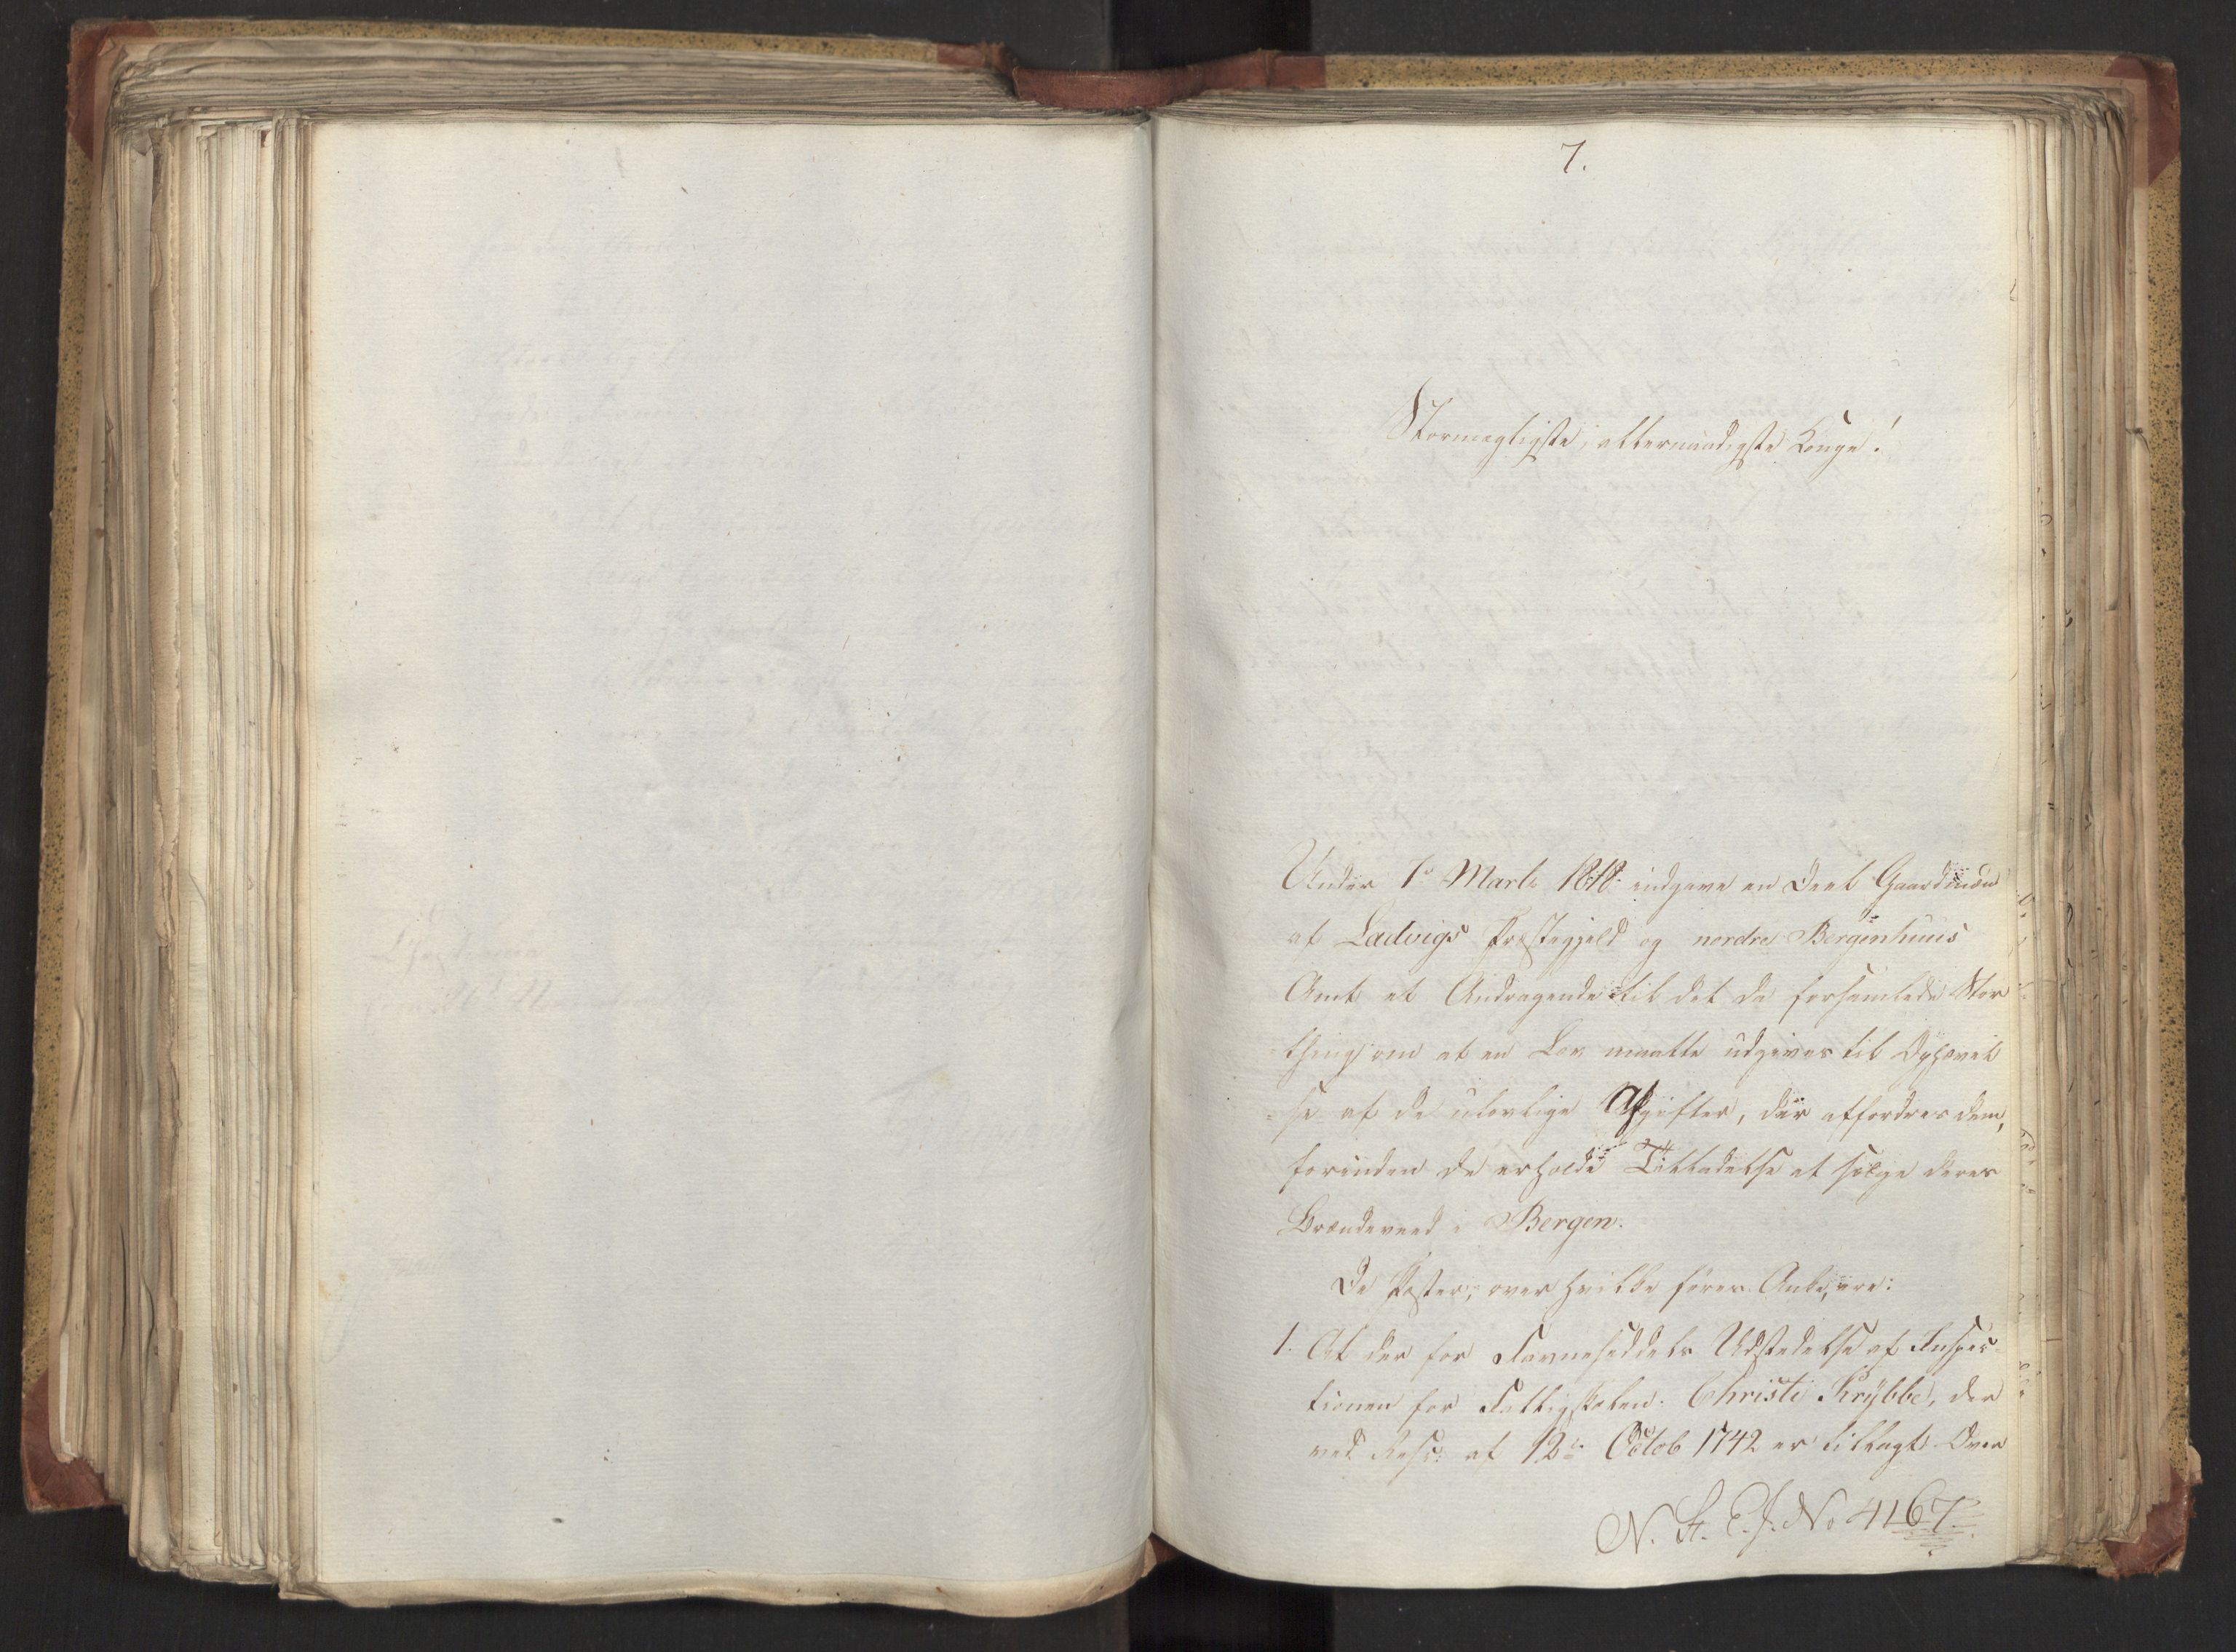 7.
Stormægtigste, allernaadigste Konge!
Under 1ste Marts 1818 indgave en Deel Gaardmænd
af Ladvigs Præstegjeld og nordre Bergenhuus
Amt et Andragende til det da forsamlede Stor
thing om at en Lov maatte udgives til Ophævel
-se af de ulovlige Afgifter, der affordres dem,
forinden de erholde Tilladelse at sælge deres
Brændeveed i Bergen.
De Poster, over hvilke føres Anke, ere:
1. At der for Favneseddels Udstedelse af Inspec-
tionen for Fattigskolen Christi Krybbe, der
ved Resc: af 12te Octob 1742 er tillagt Over
N. St. E. J. No 4167.